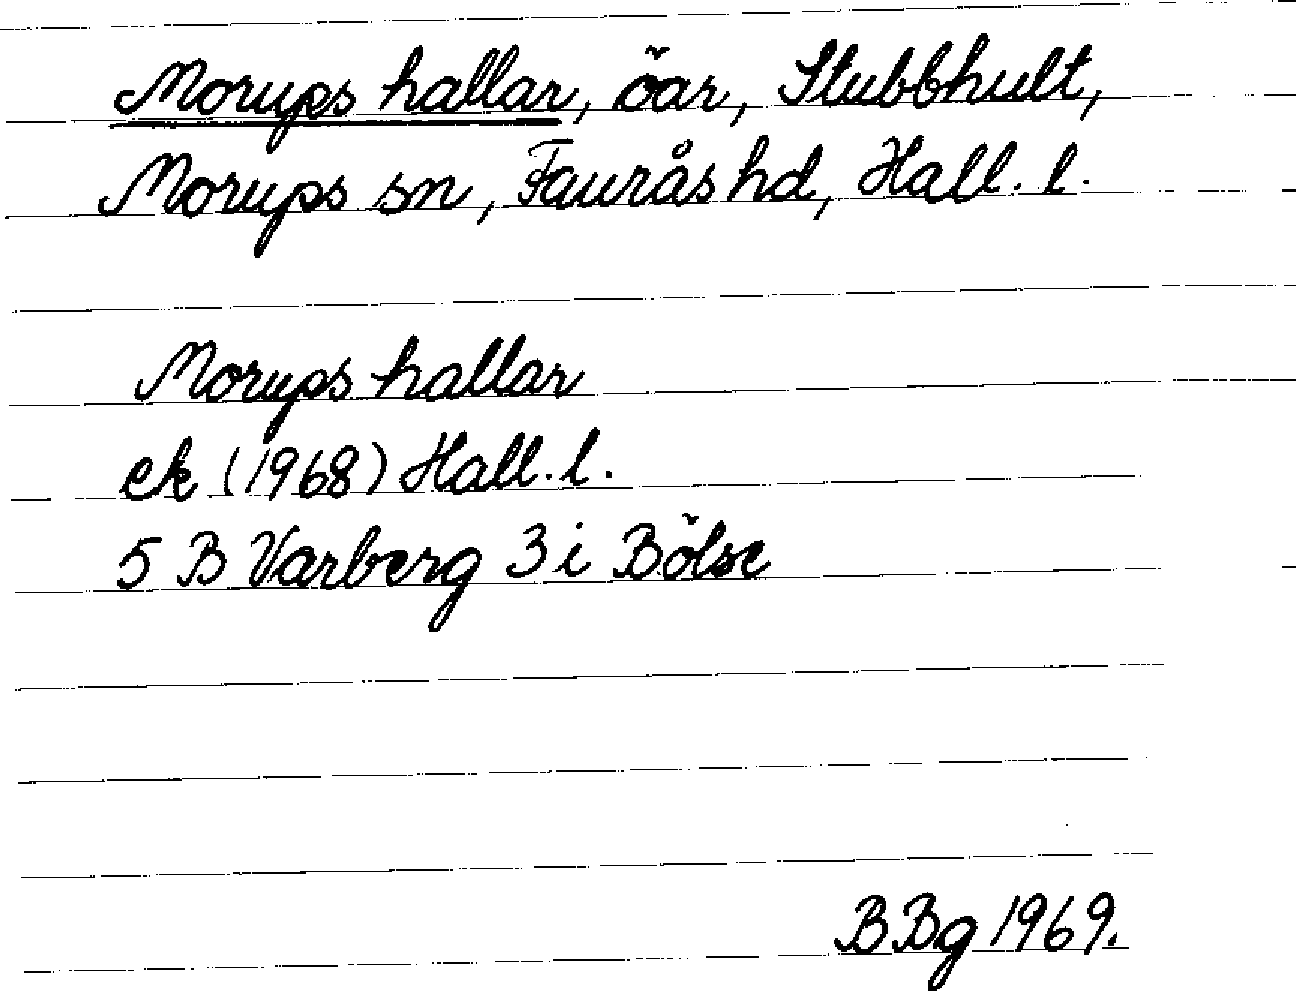 Morups hallar, öar, Stubbhult,
Morups sn, Faurås hd, Hall. l.
Morups hallar
ek (1968) Hall. l.
5 B Varberg 3 i Bölse
BBg 1969.